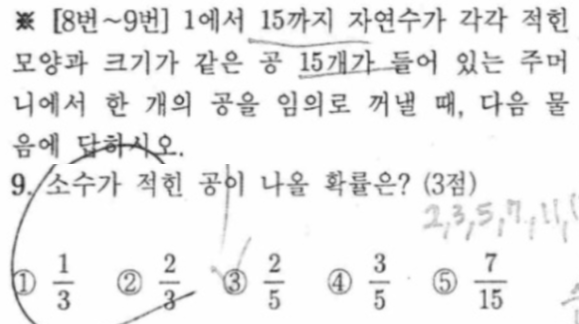 ※ [8번~9번] 1에서 15까지 자연수가 각각 적힌
모양과 크기가 같은 공 15개가 들어 있는 주머
니에서 한 개의 공을 임의로 꺼낼 때, 다음 물
음에 답하시오.
9. 소수가 적힌 공이 나올 확률은? (3점)
2,3,5,7,11,
① 1/3 ② 2/3 ③ 2/5 ④ 3/5 ⑤ 7/15